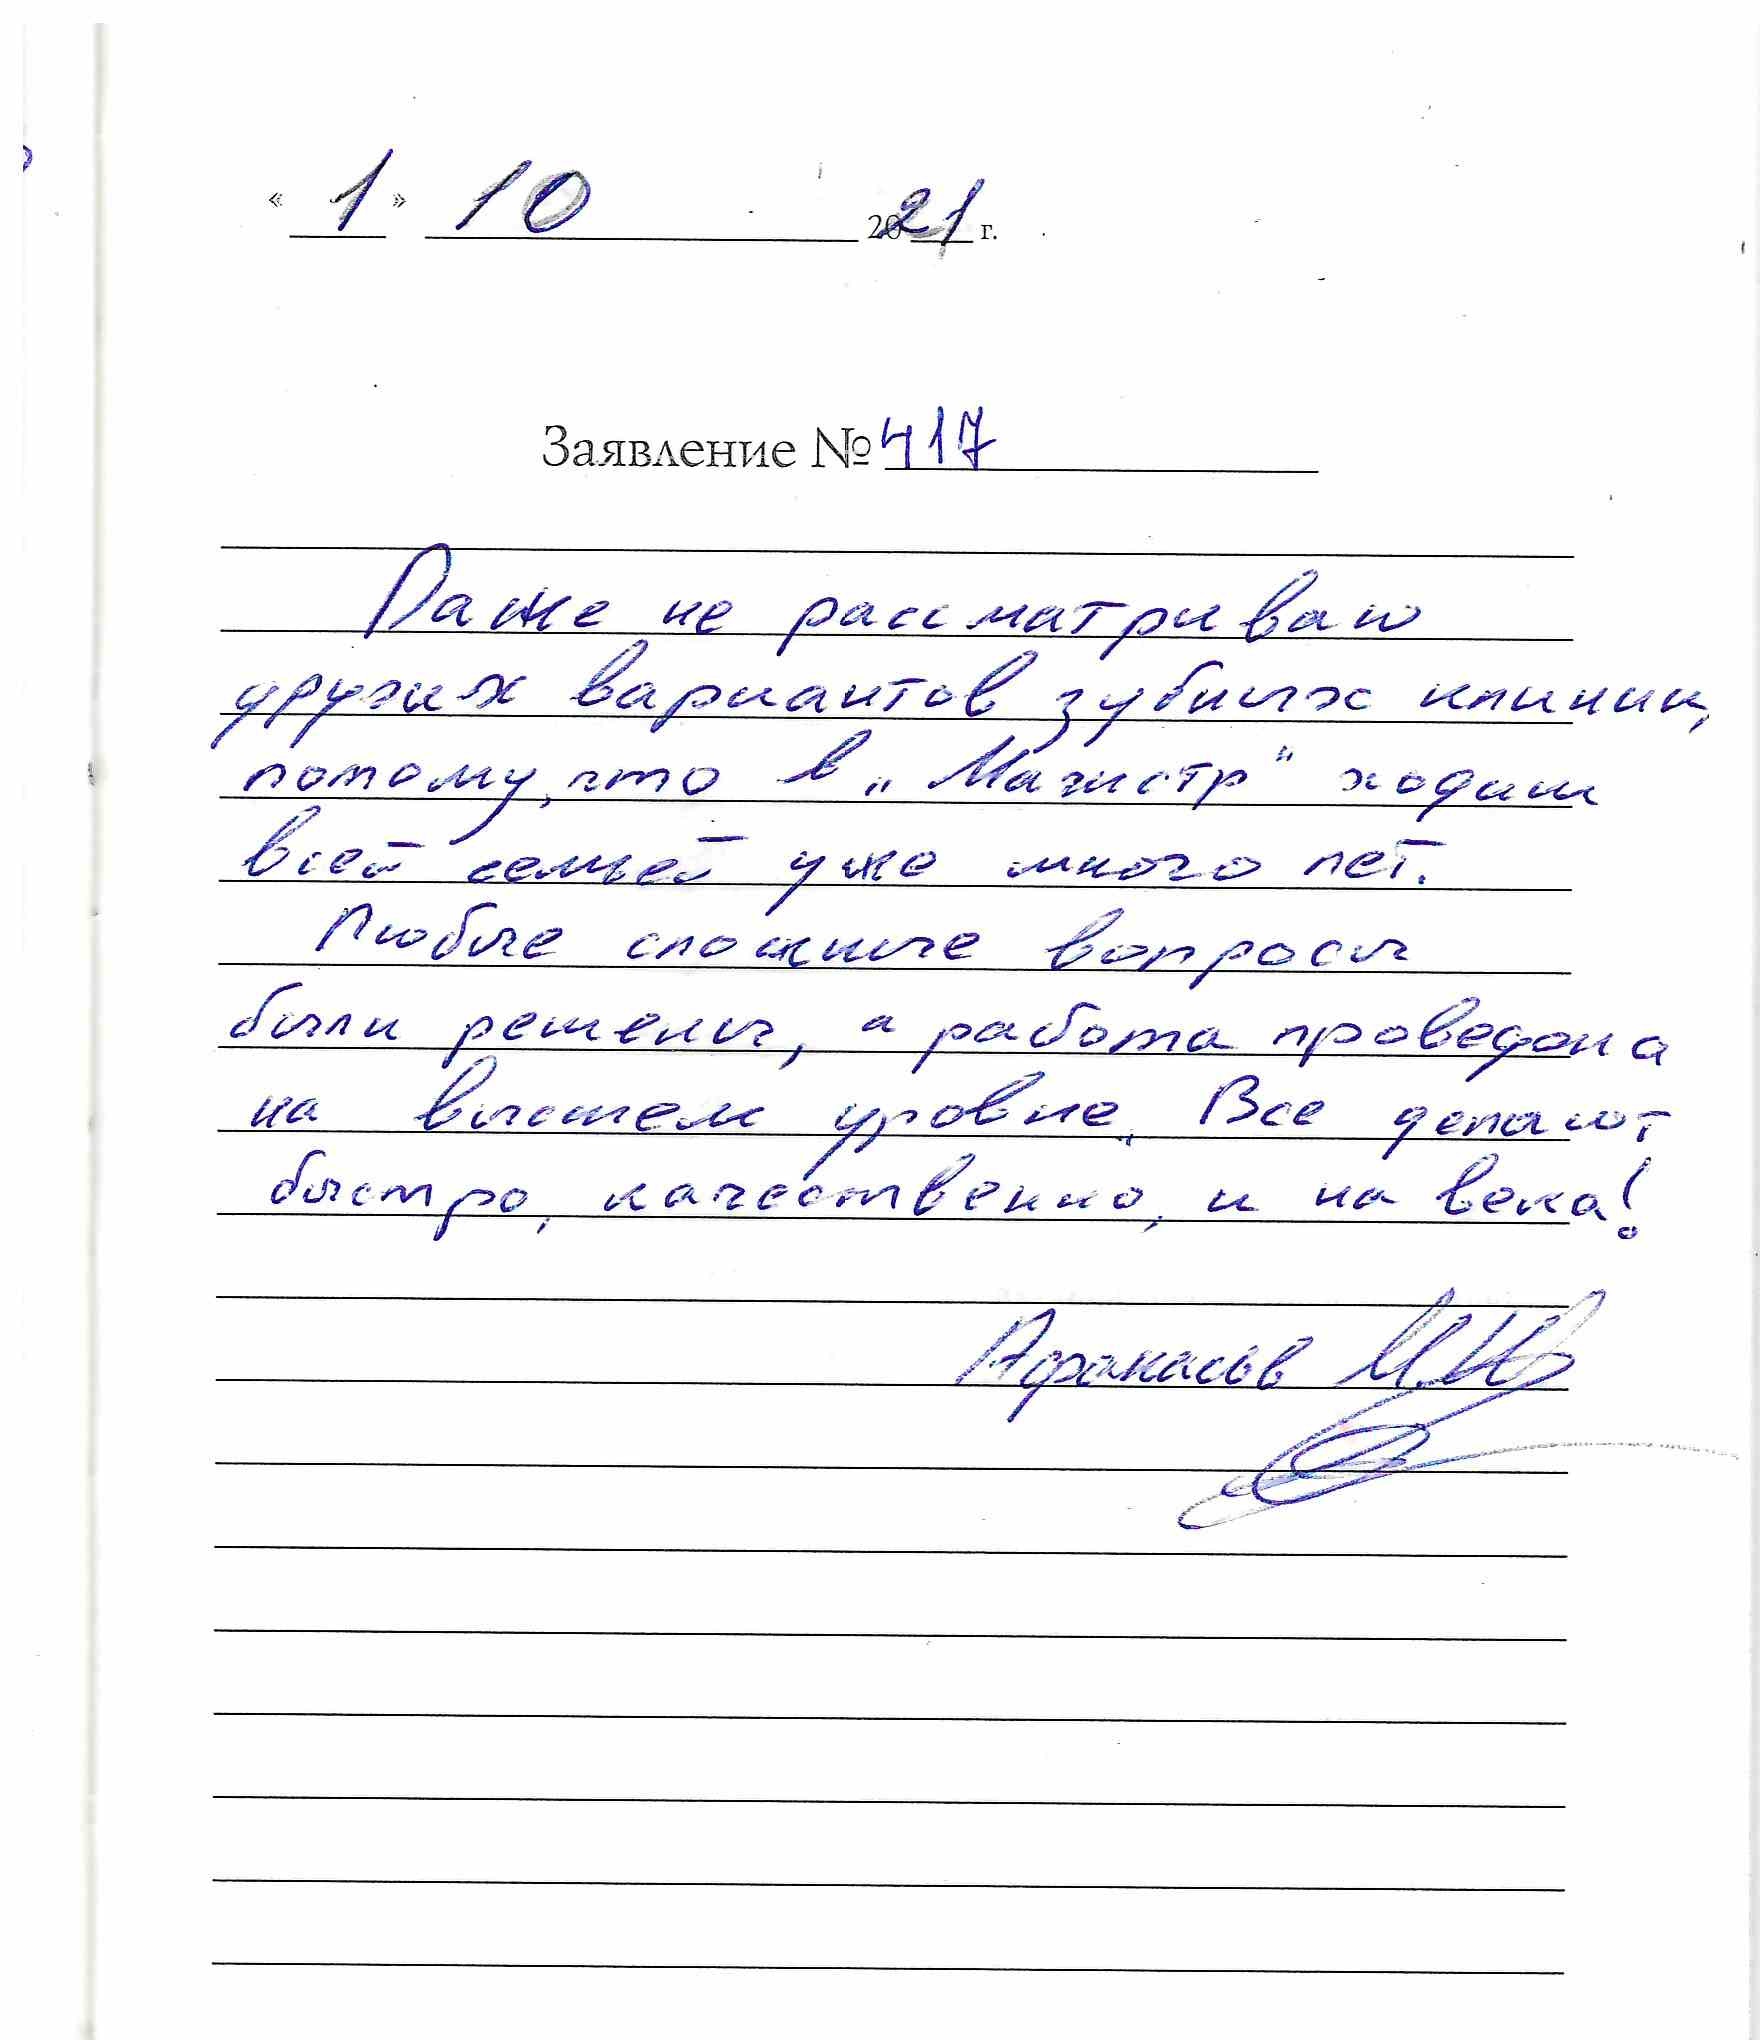 « 1 » 10 2021 г.
Заявление № 417
Даже не рассматриваю
других вариантов зубных клиник,
потому, что в „Магистр“ ходим
всей семьей уже много лет.
Любые сложные вопросы
были решены, а работа проведена
на высшем уровне. Все делают
быстро, качественно, и на века!
Афанасьев М.